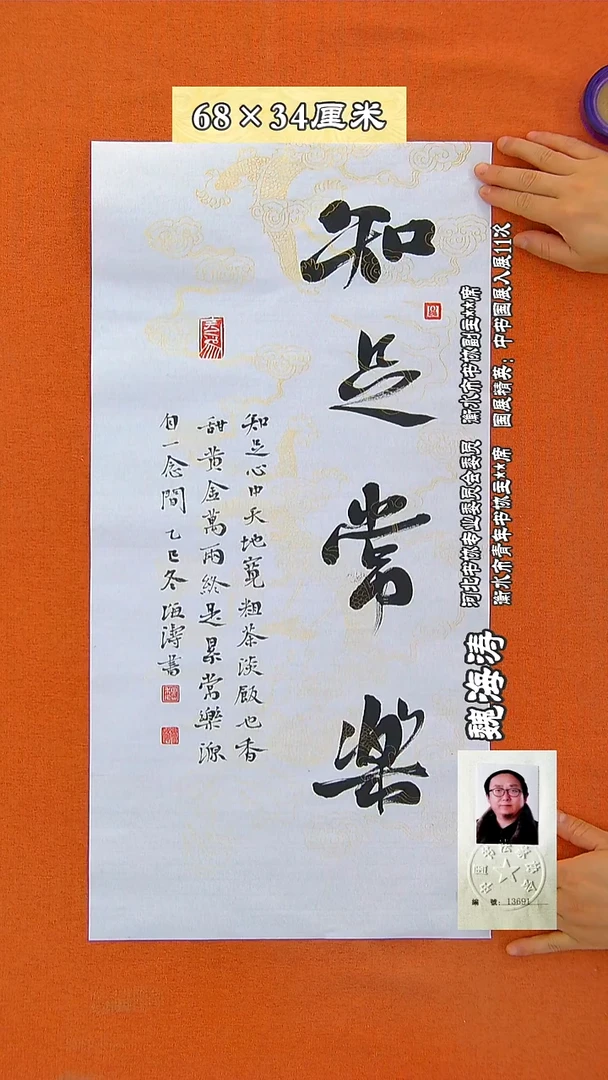 68×34厘米
知足常樂
知足心中天地寬粗茶淡飯也香
甜黃金萬兩終是累常樂源
自一念間 乙巳冬海濤書
河北书协专业委员会委员 衡水市书协副主**席
衡水市青年书协主**席 国展精英：中书国展入展11次
魏海涛
編 號：13691